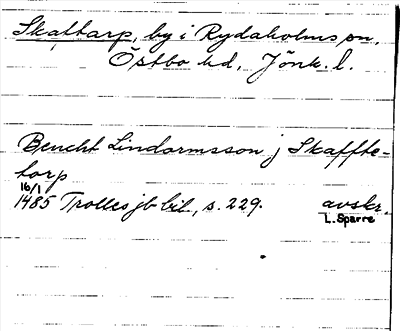 Skaftarp, by i Rydaholms sn,
Östbo hd, Jönk. l.
Bencht Lindormsson j Skaffte-
torp
16/1
1485 Trolles jb bil, s. 229. avskr.
L. Sparre